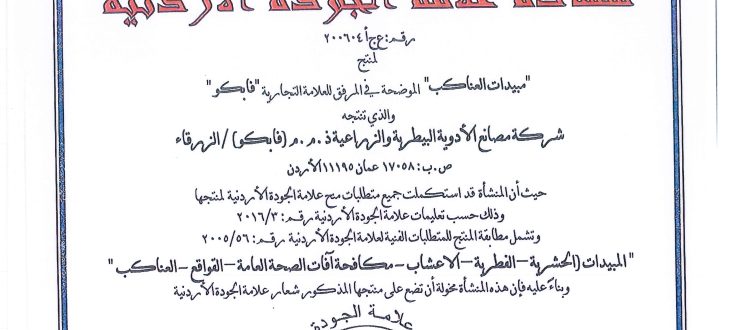 شهادة علامة الجودة الأردنية
رقم: ع ج أ ٢٠٠٦٠٤
لمنتج
"مبيدات العناكب" الموضحة في المرفق للعلامة التجارية "فابكو"
والذي تنتجه
شركة مصانع الأدوية البيطرية والزراعية ذ.م.م (فابكو) / الزرقاء
ص.ب: ١٧٠٥٨ عمان ١١١٩٥ الأردن
حيث أن المنشأة قد استكملت جميع متطلبات منح علامة الجودة الأردنية لمنتجها
وذلك حسب تعليمات علامة الجودة الأردنية رقم: ٢٠١٦/٣
وتشمل مطابقة المنتج للمتطلبات الفنية لعلامة الجودة الأردنية رقم: ٢٠٠٥/٥٦
"المبيدات (الحشرية – الفطرية – الاعشاب – مكافحة آفات الصحة العامة – القواقع – العناكب"
وبناءً عليه فإن هذه المنشأة مخولة أن تضع على منتجها المذكور شعار علامة الجودة الأردنية
علامة الجودة